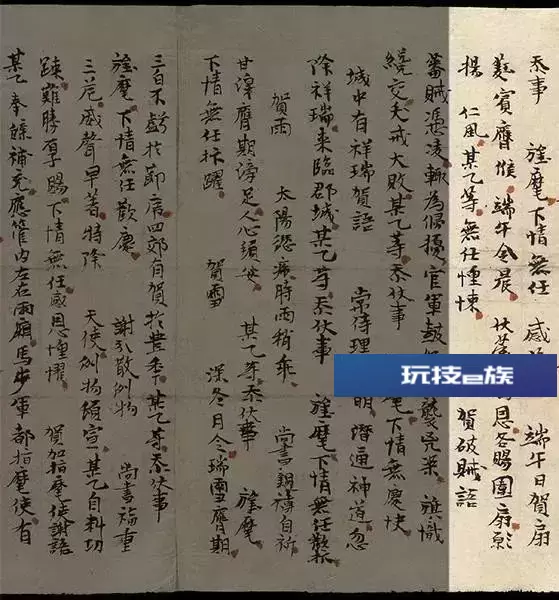 忝事 旌麾下情無任 感 端午日賀扇
蕤賓膺候端午令晨 伏蒙 恩各賜團扇願
揚 仁風某乙等無任惶悚 賀破賊語
蕃賊憑凌輒為侵擾官軍鼓 襲兇 旌識
繞交 大敗某乙等忝伏事 麾下情無慶快
城中有祥瑞賀語 常侍理 明潛通神道忽
除祥瑞来臨郡城某乙等忝伏事 旌麾下情無任歡抃
賀雨 太陽愆 時雨稍乖 尚書親禱自祈
甘澤膺期滂足人心頓安 某乙等忝伏事 旌麾
下情無任抃躍 賀雪 深冬月令瑞雪膺期
三白不虧於節 四郊自賀於豊年某乙等忝伏事
旌麾下情無任歡慶 謝 散例物 尚書福重
三危威聲早著特降 天使例物頒宣某乙自料功
踈難勝厚賜下情無任感恩惶懼 賀加指麾使謝語
某乙奉牒補充應管內左右兩廂馬步軍都指麾使有
玩技e族